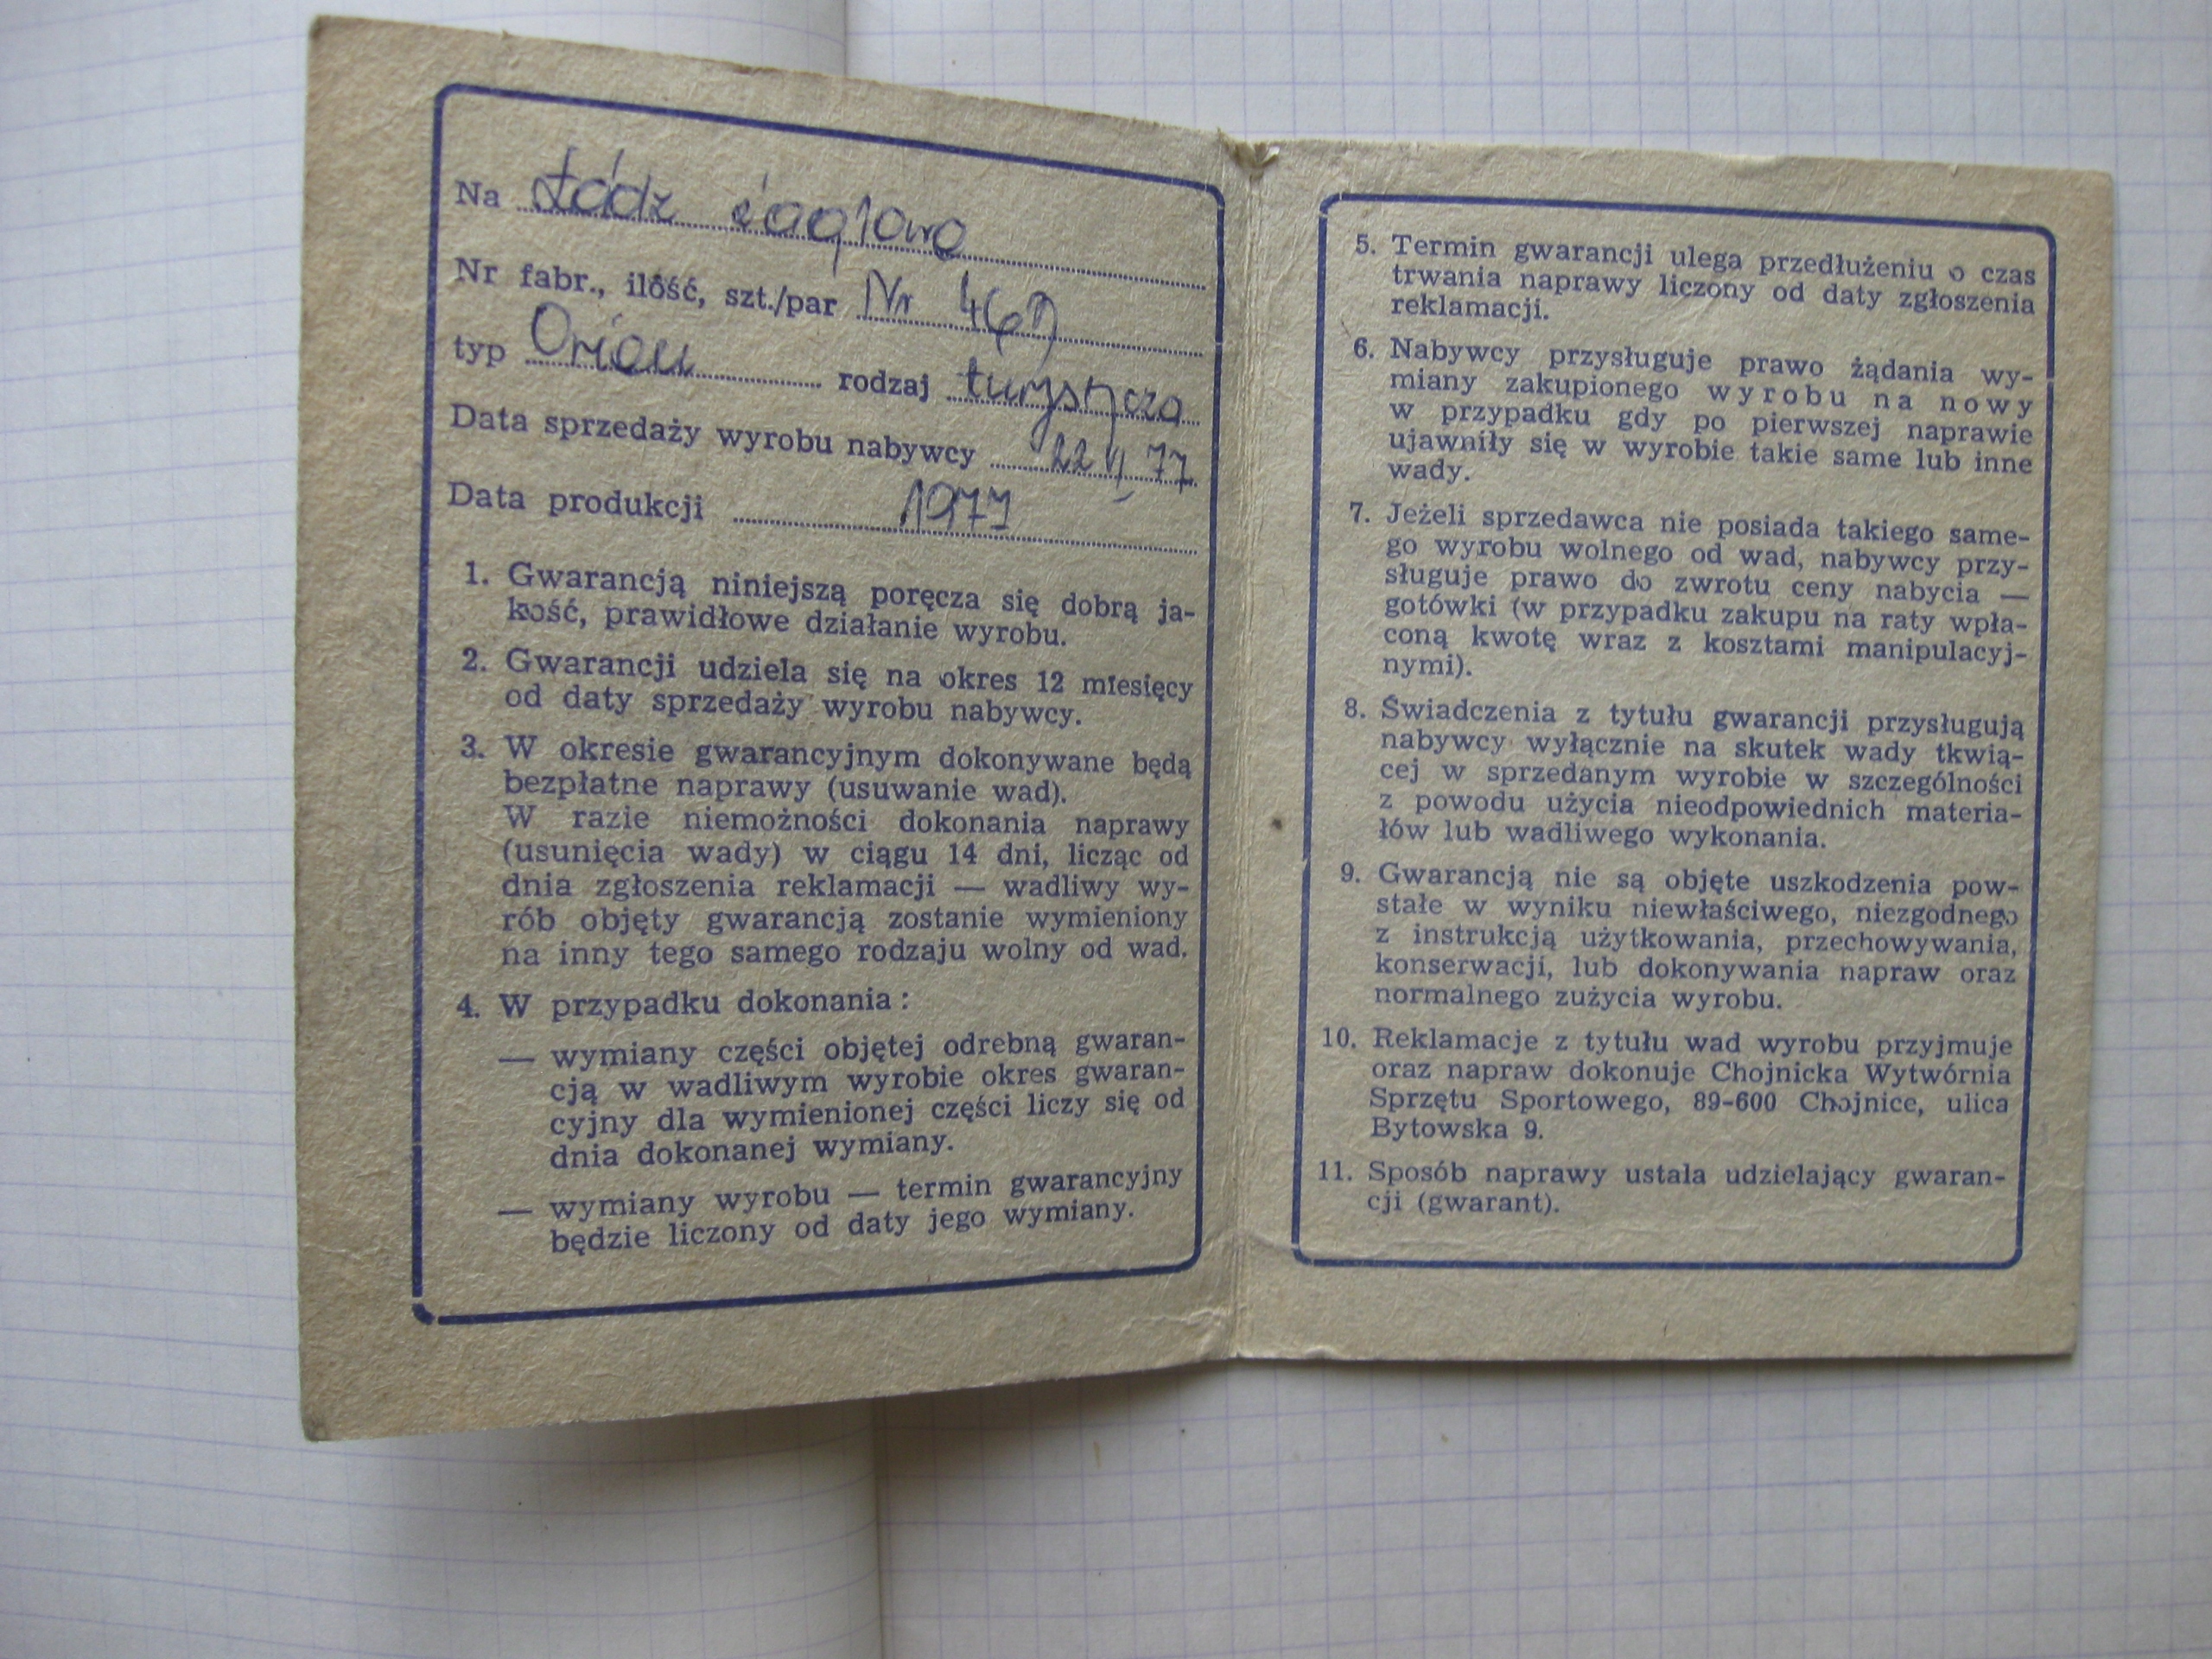 Na Łódź żaglowa
Nr fabr., ilość, szt./par Nr 469
typ Orion rodzaj turystyczna
Data sprzedaży wyrobu nabywcy 22 VI 77
Data produkcji 1977
1. Gwarancją niniejszą poręcza się dobrą ja-
kość, prawidłowe działanie wyrobu.
2. Gwarancji udziela się na okres 12 miesięcy
od daty sprzedaży wyrobu nabywcy.
3. W okresie gwarancyjnym dokonywane będą
bezpłatne naprawy (usuwanie wad).
W razie niemożności dokonania naprawy
(usunięcia wady) w ciągu 14 dni, licząc od
dnia zgłoszenia reklamacji — wadliwy wy-
rób objęty gwarancją zostanie wymieniony
na inny tego samego rodzaju wolny od wad.
4. W przypadku dokonania:
— wymiany części objętej odrebną gwaran-
cją w wadliwym wyrobie okres gwaran-
cyjny dla wymienionej części liczy się od
dnia dokonanej wymiany.
— wymiany wyrobu — termin gwarancyjny
będzie liczony od daty jego wymiany.
5. Termin gwarancji ulega przedłużeniu o czas
trwania naprawy liczony od daty zgłoszenia
reklamacji.
6. Nabywcy przysługuje prawo żądania wy-
miany zakupionego wyrobu na nowy
w przypadku gdy po pierwszej naprawie
ujawniły się w wyrobie takie same lub inne
wady.
7. Jeżeli sprzedawca nie posiada takiego same-
go wyrobu wolnego od wad, nabywcy przy-
sługuje prawo do zwrotu ceny nabycia —
gotówki (w przypadku zakupu na raty wpła-
coną kwotę wraz z kosztami manipulacyj-
nymi).
8. Świadczenia z tytułu gwarancji przysługują
nabywcy wyłącznie na skutek wady tkwią-
cej w sprzedanym wyrobie w szczególności
z powodu użycia nieodpowiednich materia-
łów lub wadliwego wykonania.
9. Gwarancją nie są objęte uszkodzenia pow-
stałe w wyniku niewłaściwego, niezgodnego
z instrukcją użytkowania, przechowywania,
konserwacji, lub dokonywania napraw oraz
normalnego zużycia wyrobu.
10. Reklamacje z tytułu wad wyrobu przyjmuje
oraz napraw dokonuje Chojnicka Wytwórnia
Sprzętu Sportowego, 89-600 Chojnice, ulica
Bytowska 9.
11. Sposób naprawy ustala udzielający gwaran-
cji (gwarant).